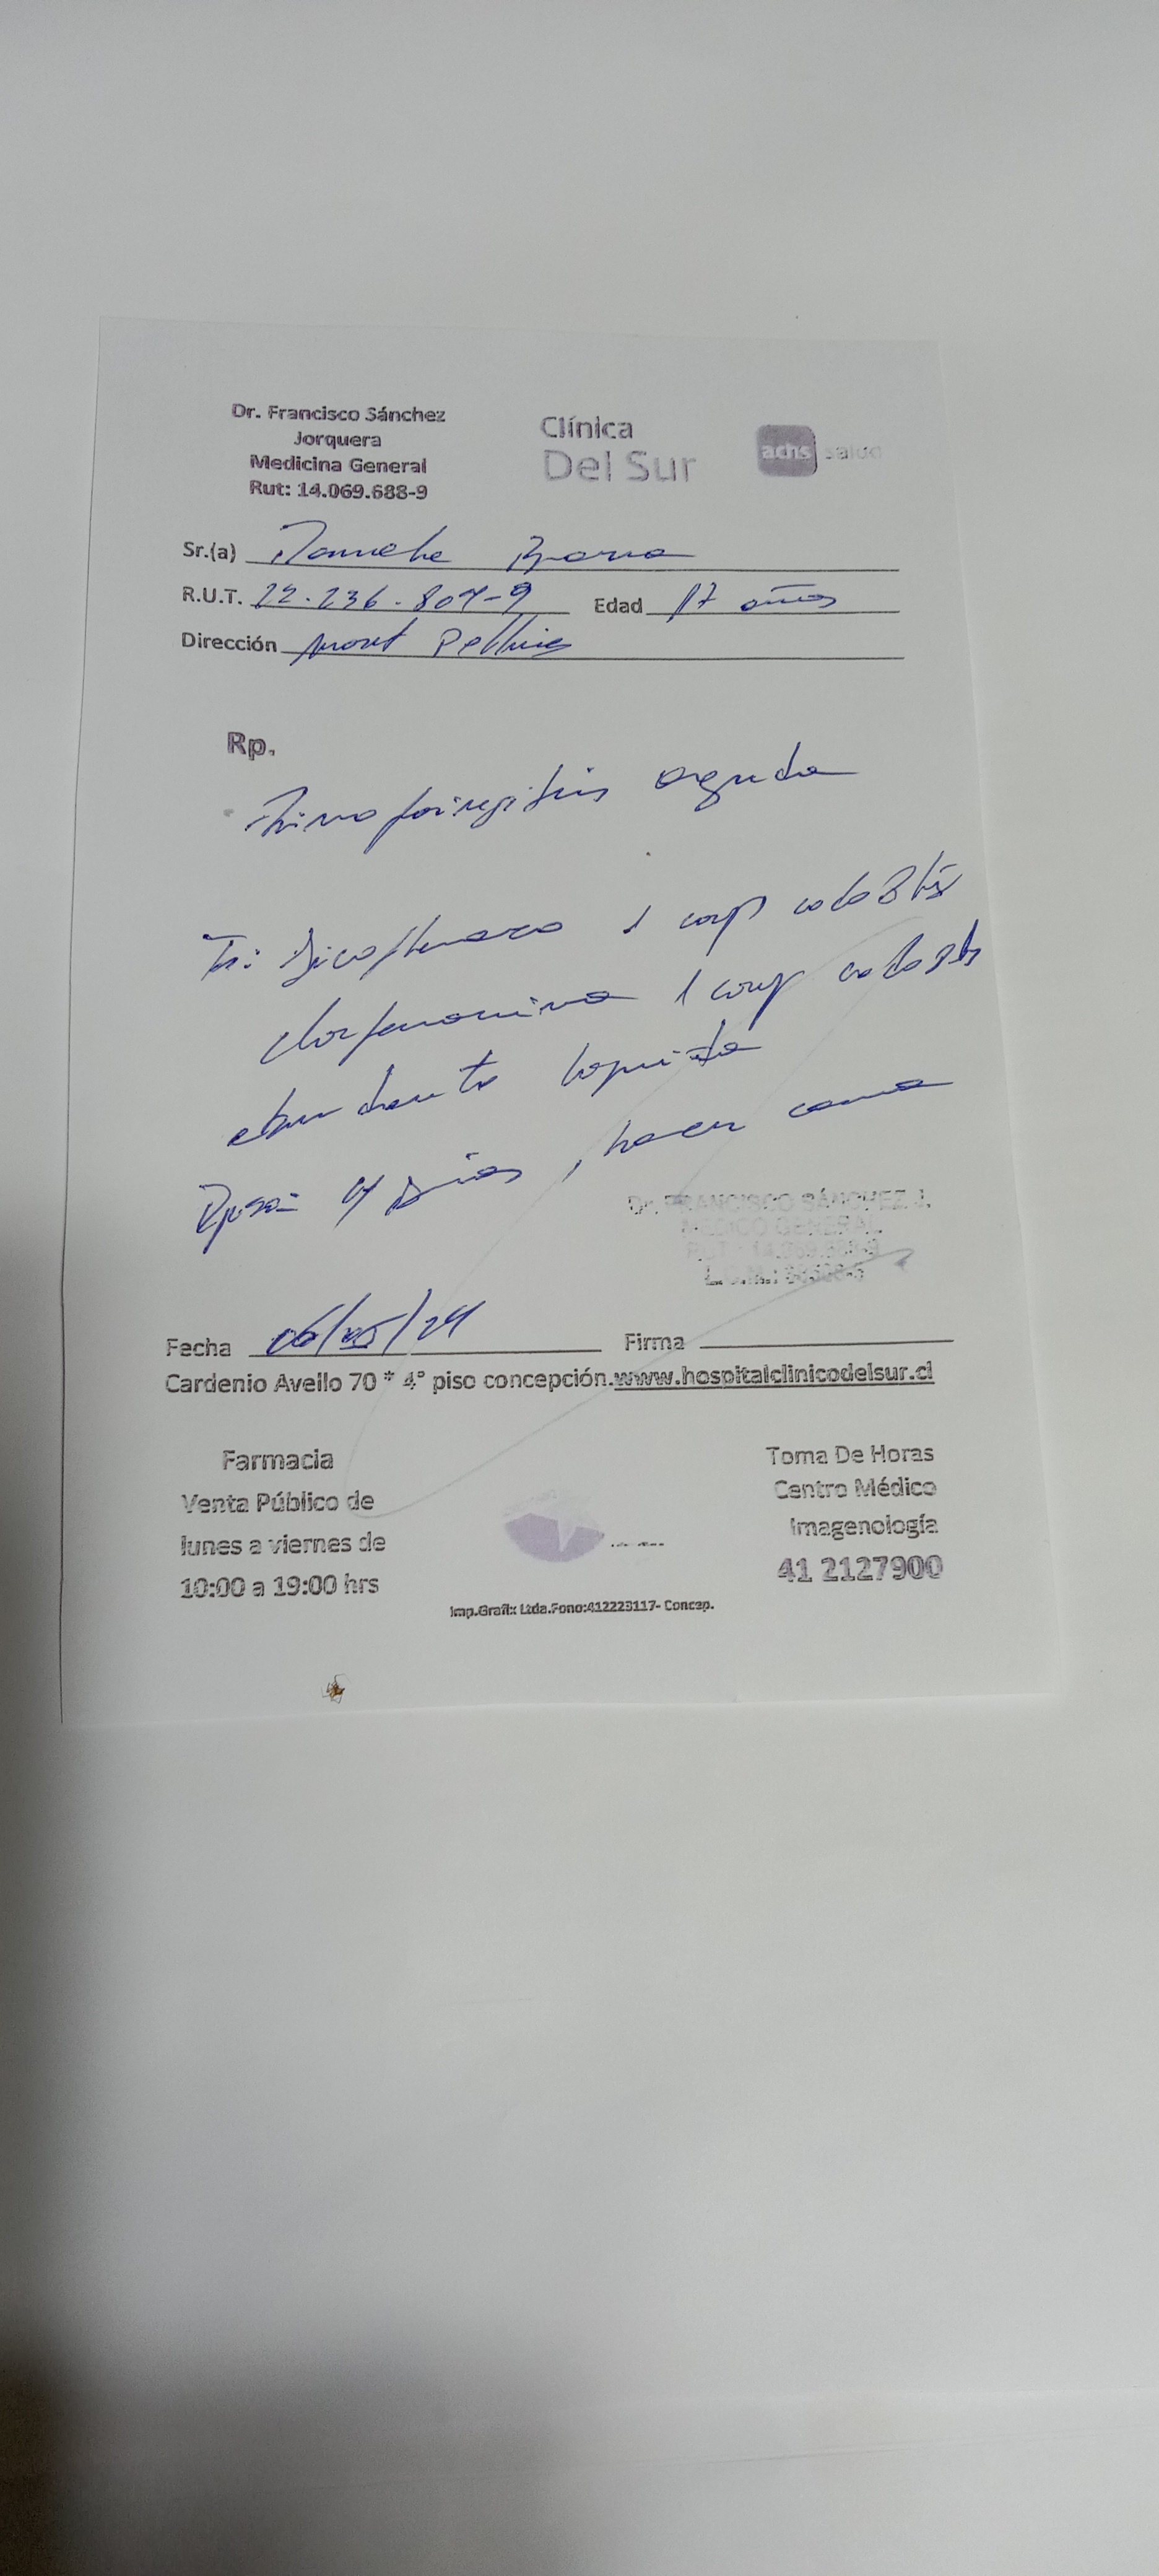 Dr. Francisco Sánchez
Jorquera
Medicina General
Rut: 14.069.688-9
Clínica
Del Sur
achs salud
Sr.(a)
R.U.T. 22.236.807-9 Edad 17 años
Dirección Mont
Rp.
Rinofaringitis aguda
Tr: Diclofenaco 1 comp cada 8 hrs
clorfenamina 1 comp cada 8 hrs
abundante líquido
Reposo 4 días, hacer cama
Dr. FRANCISCO SÁNCHEZ J.
MEDICO GENERAL
RUT.: 14.069.688-9
Fecha 06/05/24 Firma
Cardenio Avello 70 * 4° piso concepción.www.hospitalclinicodelsur.cl
Farmacia
Venta Público de
lunes a viernes de
10:00 a 19:00 hrs
Toma De Horas
Centro Médico
Imagenología
41 2127900
Imp.Grafix Ltda.Fono:412223117- Concep.